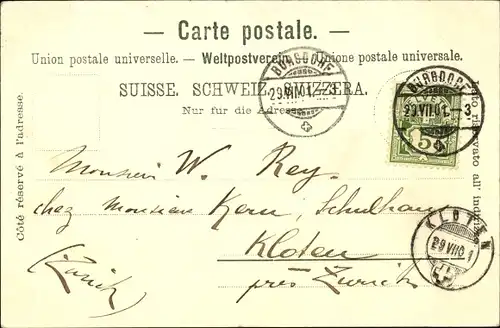 — Carte postale. —
Union postale universelle. — Weltpostverein. — Unione postale universale.
SUISSE. SCHWEIZ. SVIZZERA.
Nur für die Adresse.
Côté réservé à l'adresse.
Lato riservato all' indirizzo.
BURGDORF
29.VII.01.–3
BURGDORF
29.VII.01.–3
HELVETIA
5
KLOTEN
29 VII 01
Monsieur W. Rey.
chez Monsieur Kern, Schulhaus
Kloten
près Zurich
(Zürich)